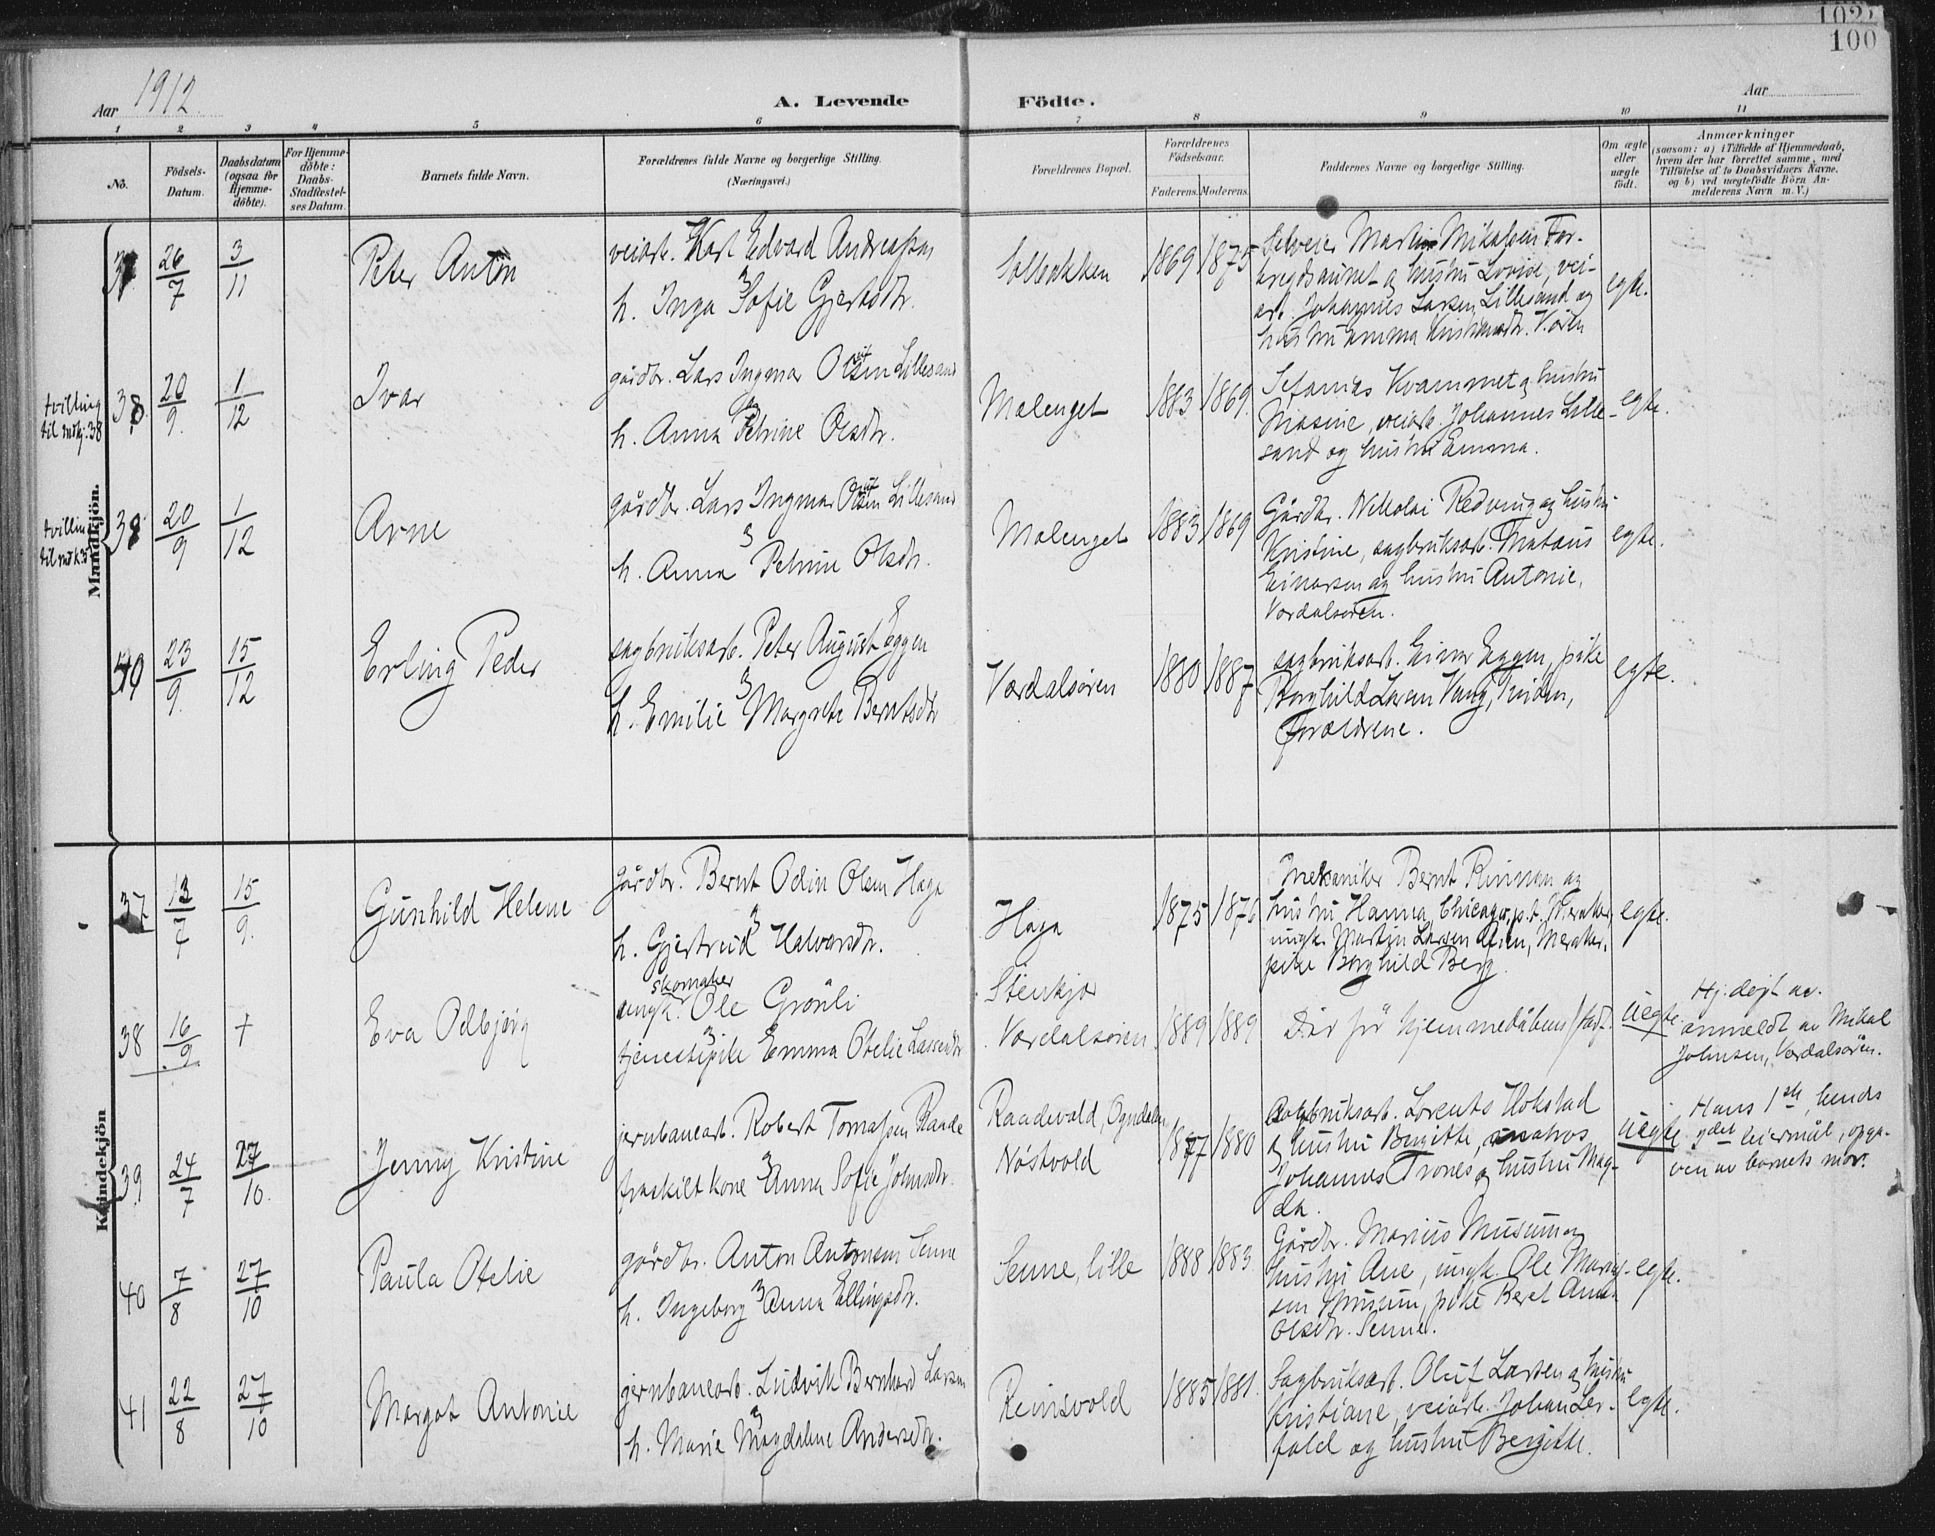 102
100
Aar 1912.
A. Levende Födte.
Aar
1 2 3 4 5 6 7 8 9 10 11
No.
Födsels-Datum.
Daabsdatum (ogsaa for Hjemme-döbte).
For Hjemme-döbte: Daabs-Stadfæstel-ses Datum.
Barnets fulde Navn.
Forældrenes fulde Navne og borgerlige Stilling.
(Næringsvei.)
Forældrenes Bopæl.
Forældrenes Födselsaar.
Faderens. Moderens.
Faddernes Navne og borgerlige Stilling.
Om ægte eller uægte födt.
Anmærkninger
(saasom: a) i Tilfælde af Hjemmedaab, hvem der har forrettet samme, med Tilföielse af to Daabsvidners Navne, og b) ved uægtefödte Börn Anmelderens Navn m. V.)
Mandkjön.
26/7 3/11 Peter Anton
veiarb. Karl Edvard Andreassen
h. Inga Sofie Gjertsdtr.
Solbakken 1869 1875
Selveier Martin Mikalsen For-
bregdsaunet og hustru Lovise, vei-
arb. Johannes Larsen Lillesand og
hustru
egte.
tvilling til mdkj. 38
20/9 1/12 Ivar
gårdbr. Lars Ingmar Olsen Lillesand
h. Anna Petrine Olsdtr.
Molenget 1883 1869.
Sefanias Kvammet og hustru
Masine, veiarb. Johannes Lille-
sand og hustru Emma.
egte.
tvilling
38 20/9 1/12 Arne
gårdbr. Lars Ingmar Olsen Lillesand
h. Anna Petrine Olsdtr.
Molenget 1883 1869
Gårdbr. Nikolai Redving og hustru
Kristine, sagbruksarb. Mataus
Einarsen og hustru Antonie,
Værdalsøren.
egte.
40 23/9. 15/12 Erling Peder
sagbruksarb. Peter August Eggen
h. Emilie Margrete Berntsdtr
Værdalsøren 1880 1887
sagbruksarb. Einar Eggen, pike
Borghild Larsen Vang, Inderøen,
forældrene.
egte.
Kvindekjön
37 13/7 15/9. Gunhild Helene
gårdbr. Bernt Odin Olsen Haga
h. Gjertrud Halvorsdtr.
Haga 1875 1876
Mekaniker Bernt Rinnan og
hustru Hanna, Chicago, p.t. Meraker,
ungk. Martin Larsen Lien, Meraker.
pike Borghild Berg.
egte.
38 16/9 + Eva Odbjørg
skomaker
ungk. Ole Grönli
tjenestepike Emma Otelie Larsdtr
Stenkjær
Værdalsøren 1889 1889
Død før hjemmedåbens stadf.
uegte.
Hj. døpt av.
anmeldt av Mikal
Johnsen, Værdalsøren.
39 24/7 27/10. Jenny Kristine
jernbanearb. Robert Tomassen Raade
fraskilt kone Anna Sofie Johnsdtr.
Raadevold, Ogndalen
Nöstvold 1877 1880
Sagbruksarb. Lorents Hokstad
og hustru Birgitte, matros
Johannes Trones og hustru Mag-
da.
uegte
Hans 1ste, hendes
2det leiermål, opgi-
ven av barnets mor.
40 7/8 27/10 Paula Otelie
gårdbr. Anton Antonsen Senne
h. Ingeborg Anna Ellingsdtr.
Senne, lille 1888 1883
Gårdbr. Marius Musum og
hustru Ane, ungk. Ole Marius-
sen Musum, pike Beret Anna
Olsdtr. Senne.
egte.
41 22/8 27/10 Margot Antonie
jernbanearb. Ludvik Bernhard Larsen
h. Marie Magdalene Andersdtr.
Reinsvold 1885 1881.
Sagbruksarb. Oluf Larsen og hustru
Kristiane, veiarb. Johan Ler-
fald og hustru Bergitte.
egte.